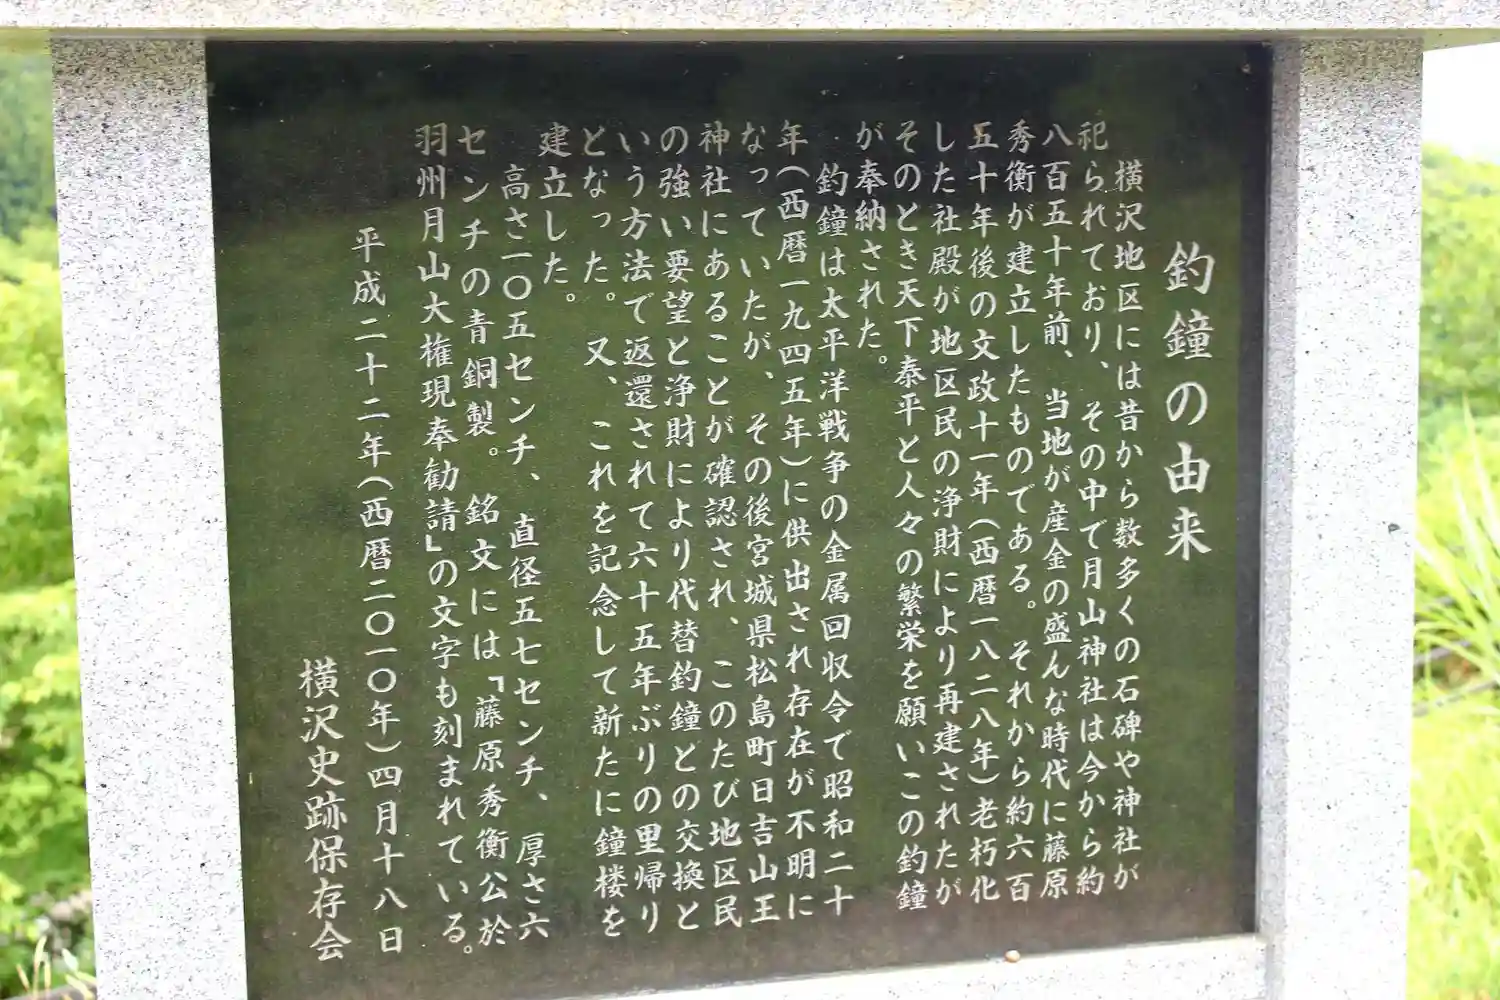 釣鐘の由来
横沢地区には昔から数多くの石碑や神社が
祀られており、その中で月山神社は今から約
八百五十年前、当地が産金の盛んな時代に藤原
秀衡が建立したものである。それから約六百
五十年後の文政十一年(西暦一八二八年)老朽化
した社殿が地区民の浄財により再建されたが
そのとき天下泰平と人々の繁栄を願いこの釣鐘
が奉納された。
釣鐘は太平洋戦争の金属回収令で昭和二十
年(西暦一九四五年)に供出され存在が不明に
なっていたが、その後宮城県松島町日吉山王
神社にあることが確認され、このたび地区民
の強い要望と浄財により代替釣鐘との交換と
いう方法で返還されて六十五年ぶりの里帰り
となった。又、これを記念して新たに鐘楼を
建立した。
高さ一〇五センチ、直径五七センチ、厚さ六
センチの青銅製。銘文には「藤原秀衡公於
羽州月山大権現奉勧請」の文字も刻まれている。
平成二十二年(西暦二〇一〇年)四月十八日
横沢史跡保存会